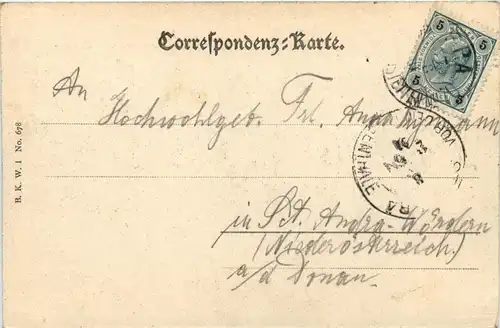 Correspondenz-Karte.
5 5
5 5
An
Hochwohlgeb. Frl. Anna
in St. Andrä-Wördern
(Niederösterreich)
a/d Donau.
B. K. W. I No. 678